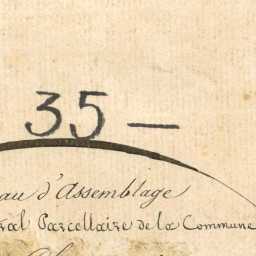 35 —
au d'Assemblage
ral Parcellaire de la Commune